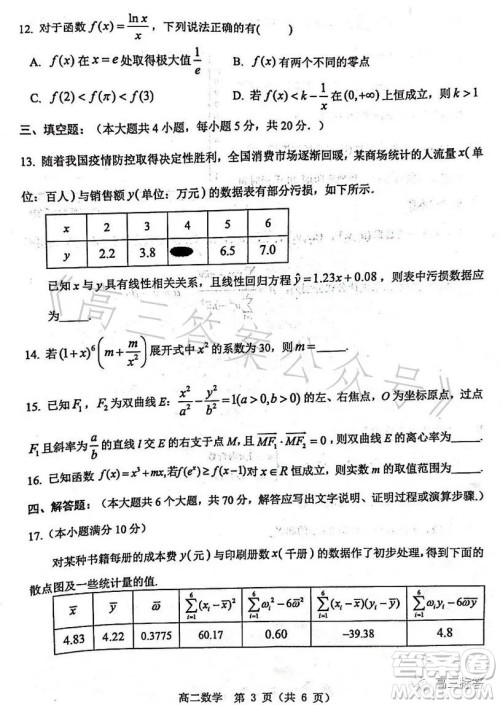 12. 对于函数 f(x)=lnx/x，下列说法正确的有(　　)
A. f(x) 在 x=e 处取得极大值 1/e　　B. f(x) 有两个不同的零点
C. f(2)<f(π)<f(3)　　D. 若 f(x)<k-1/x 在(0,+∞)上恒成立，则 k>1
三、填空题：（本大题共 4 小题，每小题 5 分，共 20 分．）
13. 随着我国疫情防控取得决定性胜利，全国消费市场逐渐回暖，某商场统计的人流量 x(单
位：百人)与销售额 y(单位：万元)的数据表有部分污损，如下所示．
x 2 3 4 5 6
y 2.2 3.8 6.5 7.0
已知 x 与 y 具有线性相关关系，且线性回归方程 ŷ=1.23x+0.08，则表中污损数据应
为_____．
14. 若(1+x)^6(m+m/x²)展开式中 x² 的系数为 30，则 m=_____．
15. 已知 F₁，F₂ 为双曲线 E: x²/a²-y²/b²=1(a>0,b>0)的左、右焦点，O 为坐标原点，过点
F₁ 且斜率为 a/b 的直线 l 交 E 的右支于点 M，且 MF₁·MF₂=0，则双曲线的离心率为_____．
16. 已知函数 f(x)=x³+mx,若f(eˣ)≥f(x-1)对 x∈R 恒成立，则 m 的取值范围为_____．
四、解答题：（本大题共 6 个大题，共 70 分，解答应写出文字说明、证明过程或演算步骤．）
17.（本小题满分 10 分）
对某种书籍每册的成本费 y(元)与印刷册数 x(千册)的数据作了初步处理，得到下面的
散点图及一些统计量的值．
x̄ ȳ ω̄ ∑(i=1→6)(xᵢ-x̄)² ∑(i=1→6)ωᵢ²-6ω̄² ∑(i=1→6)(xᵢ-x̄)(yᵢ-ȳ) ∑(i=1→6)ωᵢyᵢ-6ω̄ȳ
4.83 4.22 0.3775 60.17 0.60 -39.38 4.8
高二数学　第 3 页（共 6 页）
《高三答案公众号》